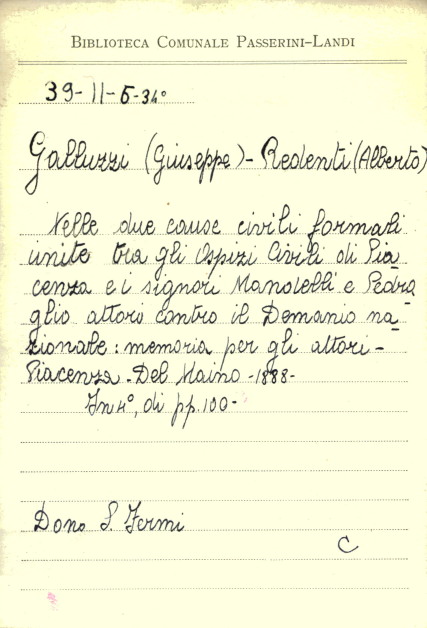 BIBLIOTECA COMUNALE PASSERINI-LANDI
39-II-6-34°
Galluzzi (Giuseppe)-Redenti (Alberto)
Nelle due cause civili formali
unite tra gli Ospizi Civili di Pia
cenza e i signori Manolelli e Pedra
glio attori contro il Demanio na
zionale: memoria per gli attori-
Piacenza-Del Maino-1888-
In 4°, di pp. 100-
Dono S. Fermi
C